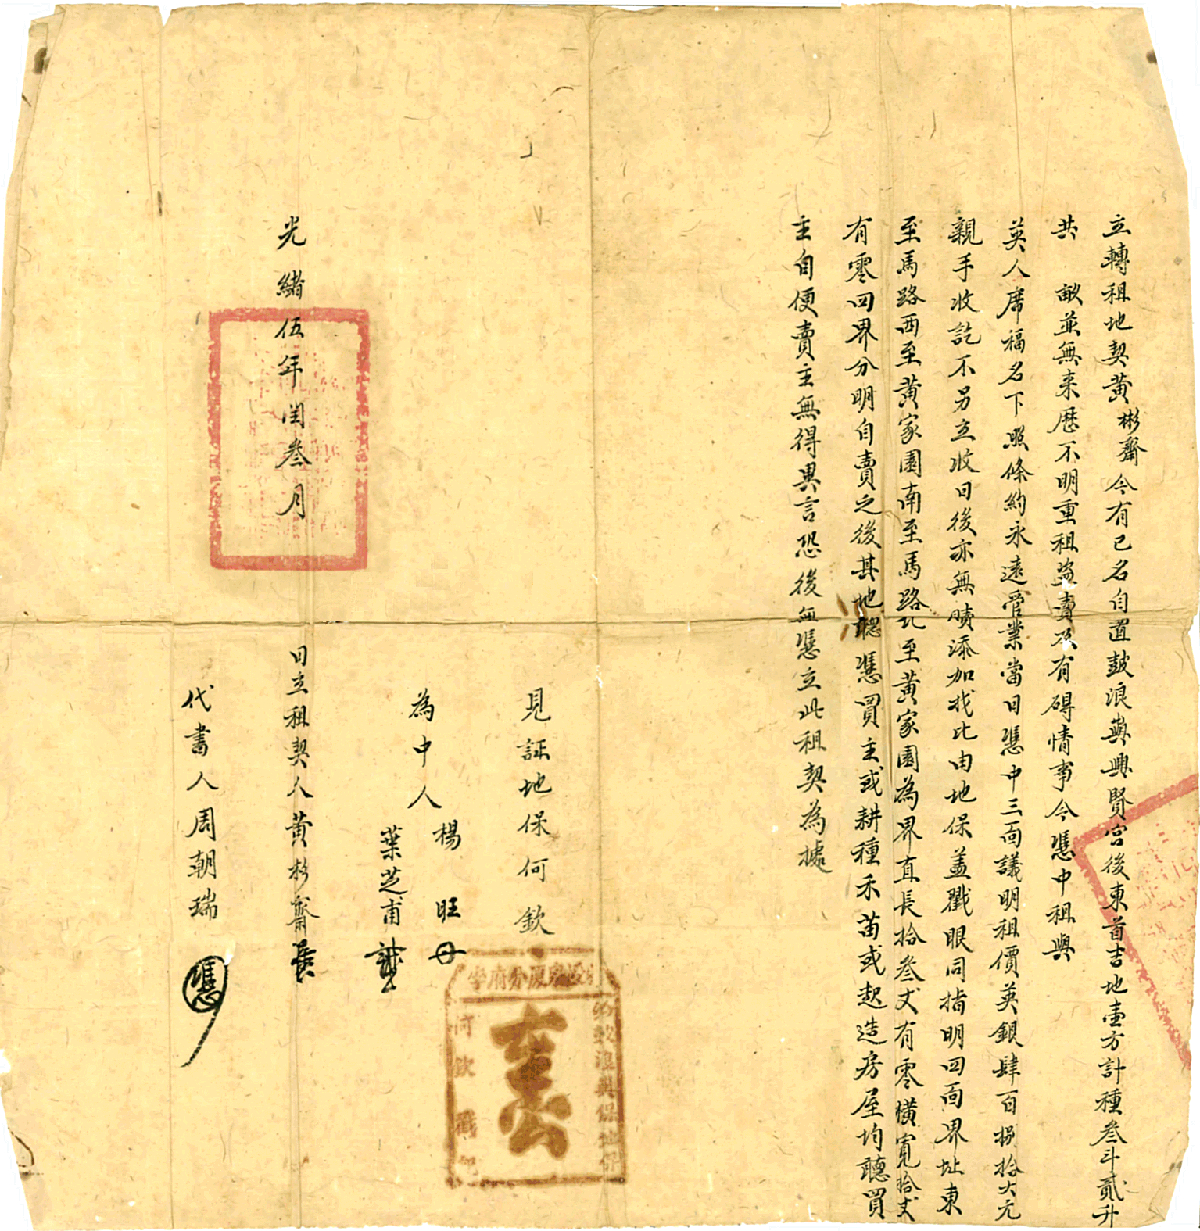 立轉租地契黃彬齋今有已名自置鼓浪嶼興賢宮後東首吉地壹方計種叁斗貳升
共 畝並無來歷不明重租盜賣及有碍情事今憑中租與
英人席福名下照條約永遠管業當日憑中三面議明租價英銀肆百捌拾大元
親手收訖不另立收日後亦無贖添加找比由地保蓋戳眼同指明四面界址東
至馬路西至黃家園南至馬路北至黃家園為界直長拾叁丈有零橫寬拾丈
有零四界分明自賣之後其地聽憑買主或耕種禾苗或起造房屋均聽買
主自便賣主無得異言恐後無憑立此租契為據
見証地保何欽
為中人 楊旺
葉芝甫
光緒伍年閏叁月 日立租契人黃彬齋
代書人周朝瑞 憑
何欽戳記